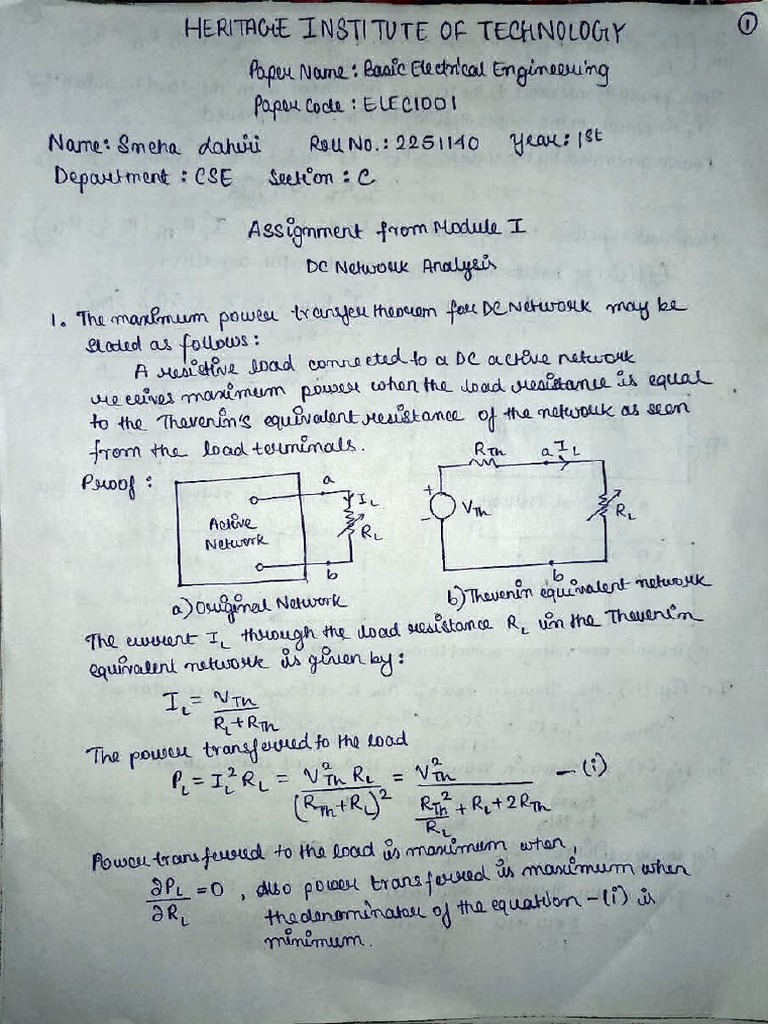 ①
HERITAGE INSTITUTE OF TECHNOLOGY
Paper Name : Basic Electrical Engineering
Paper Code : ELEC1001
Name: Sneha Lahiri Roll No. : 2251140 Year: 1st
Department : CSE Section : C
Assignment from Module I
DC Network Analysis
1. The maximum power transfer theorem for DC Network may be
stated as follows :
A resistive load connected to a DC active network
receives maximum power when the load resistance is equal
to the Thevenin's equivalent resistance of the network as seen
from the load terminals.
Proof :
Active
Network
a
I_L
R_L
b
a) Original Network
R_Th
a I_L
+
-
V_Th
R_L
b
b) Thevenin equivalent network
The current I_L through the load resistance R_L in the Thevenin
equivalent network is given by :
I_L = V_Th / (R_L + R_Th)
The power transferred to the load
P_L = I_L² R_L = V²_Th R_L / (R_Th + R_L)² = V²_Th / (R²_Th / R_L + R_L + 2R_Th) — (i)
Power transferred to the load is maximum when,
∂P_L / ∂R_L = 0 , also power transferred is maximum when
the denominator of the equation - (i) is
minimum.